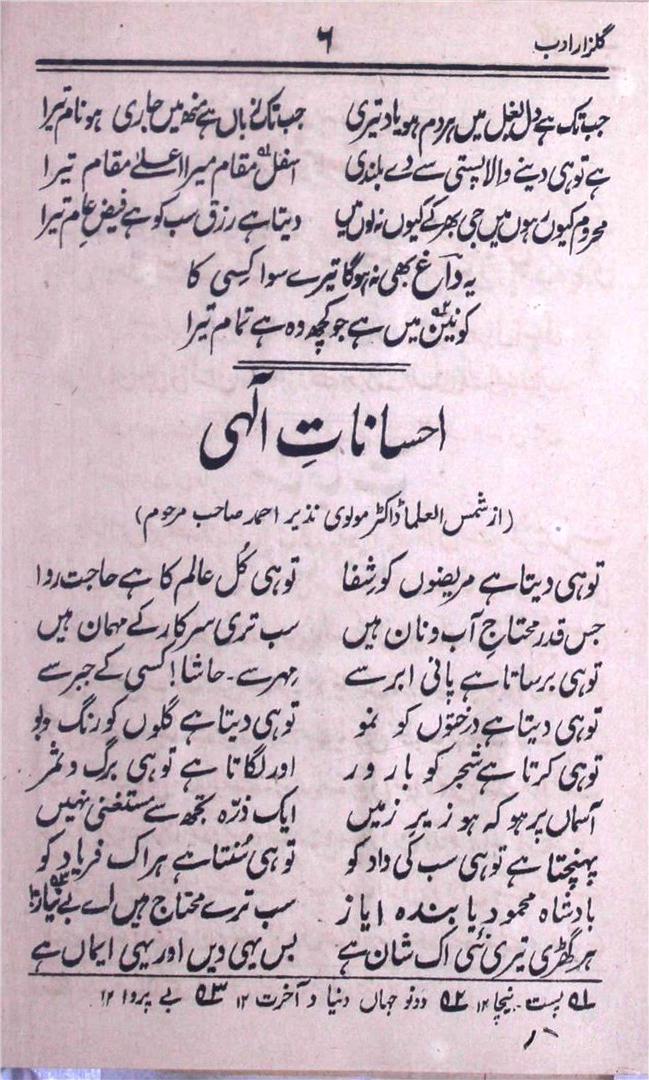 گلزار ادب ۶
جب تک ہے دل بغل میں ہردم ہو یاد تیری جب تک زباں ہے منھ میں جاری ہو نام تیرا
ہے تو ہی دینے والا پستی سے دے بلندی اسفل۱ مقام میرا اعلےٰ مقام تیرا
محروم کیوں رہوں میں جی بھر کے کیوں نہ لوں میں دیتا ہے رزق سب کو ہے فیض عام تیرا
یہ داغ بھی نہ ہوگا تیرے سوا کسی کا
کونین۲ میں ہے جو کچھ وہ ہے تمام تیرا
احساناتِ الٰہی
(از شمس العلما ڈاکٹر مولوی نذیر احمد صاحب مرحوم)
تو ہی دیتا ہے مریضوں کو شِفا تو ہی کُل عالم کا ہے حاجت روا
جس قدر محتاجِ آب و نان ہیں سب تری سرکار کے مہمان ہیں
تو ہی برساتا ہے پانی ابر سے مِہر سے۔ حاشا! کسی کے جبر سے
تو ہی دیتا ہے درختوں کو نمو تو ہی دیتا ہے گلوں کو رنگ و بو
تو ہی کرتا ہے شجر کو بارور اور لگاتا ہے تو ہی برگ و ثمر
آسماں پر ہو کہ ہو زیرِ زمیں ایک ذرّہ تجھ سے مستغنی نہیں
پہنچتا ہے تو ہی سب کی داد کو تو ہی سُنتا ہے ہر اک فریاد کو
بادشاہ محمود یا بندہ ایاز سب ترے محتاج ہیں اے بے نیاز۳!
ہر گھڑی تیری نئی اک شان ہے بس یہی دیں اور یہی ایماں ہے
۱ پست۔ نیچا ۱۲ ۲ دونو جہاں دنیا و آخرت ۱۲ ۳ بے پروا ۱۲